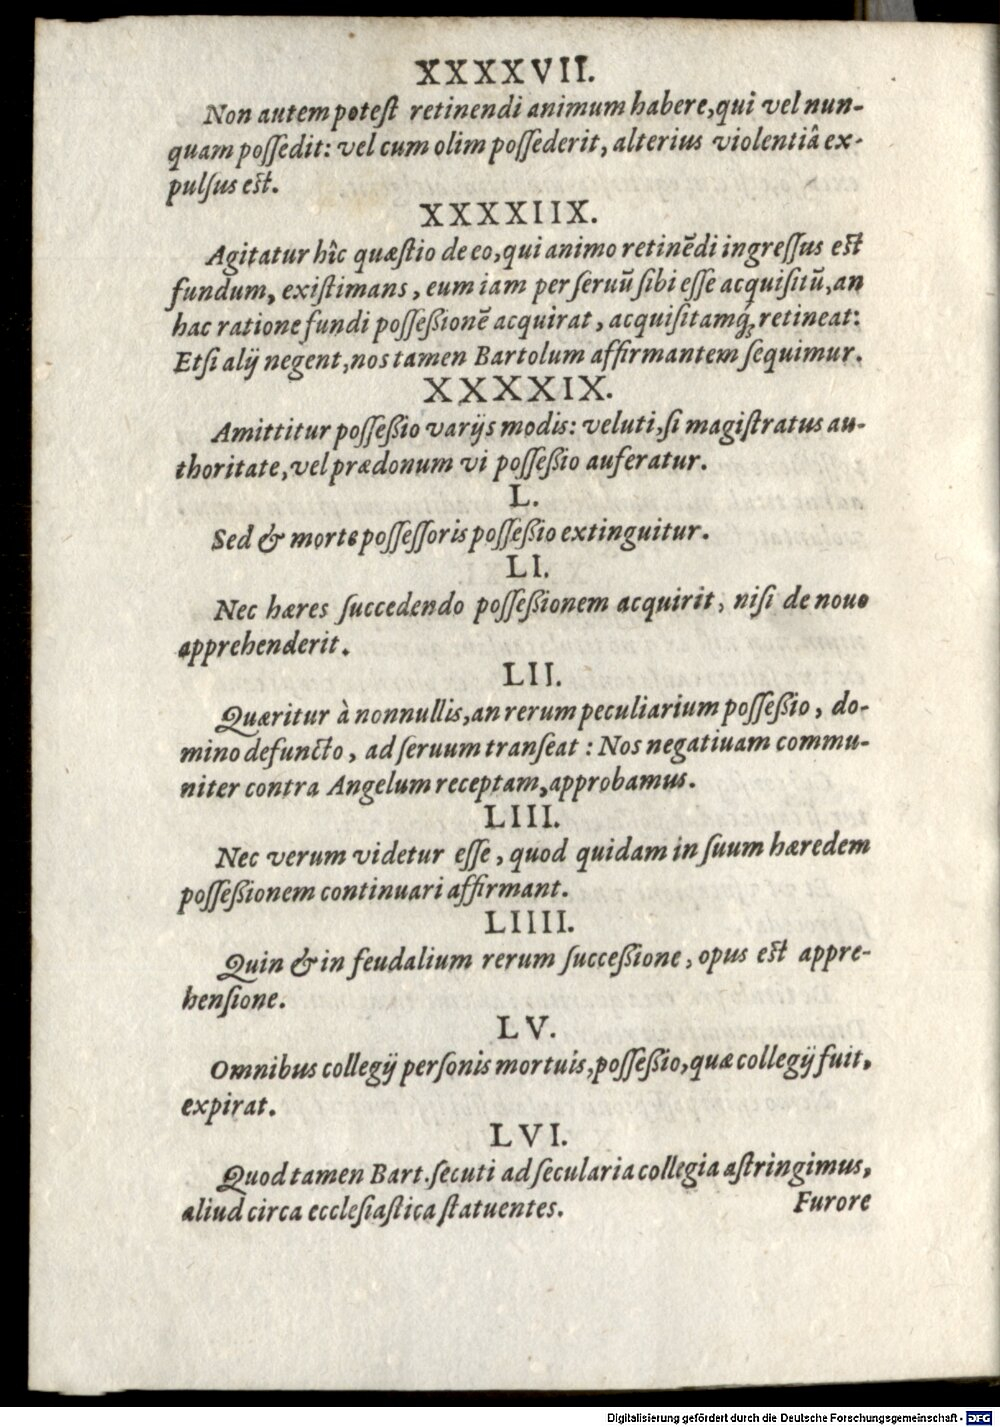 XXXXVII.
Non autem potest retinendi animum habere, qui vel nun-
quam possedit: vel cum olim possederit, alterius violentiâ ex-
pulsus est.
XXXXIIX.
Agitatur hîc quæstio de eo, qui animo retinēdi ingressus est
fundum, existimans, eum iam per seruū sibi esse acquisitū, an
hac ratione fundi possessionē acquirat, acquisitamq́; retineat:
Etsi alij negent, nos tamen Bartolum affirmantem sequimur.
XXXXIX.
Amittitur possessio varijs modis: veluti, si magistratus au-
thoritate, vel prædonum vi possessio auferatur.
L.
Sed & morte possessoris possessio extinguitur.
LI.
Nec hæres succedendo possessionem acquirit, nisi de nouo
apprehenderit.
LII.
Quæritur à nonnullis, an rerum peculiarium possessio, do-
mino defuncto, ad seruum transeat: Nos negatiuam commu-
niter contra Angelum receptam, approbamus.
LIII.
Nec verum videtur esse, quod quidam in suum hæredem
possessionem continuari affirmant.
LIIII.
Quin & in feudalium rerum successione, opus est appre-
hensione.
LV.
Omnibus collegij personis mortuis, possessio, quæ collegij fuit,
expirat.
LVI.
Quod tamen Bart. secuti ad secularia collegia astringimus,
aliud circa ecclesiastica statuentes.
Furore
Digitalisierung gefördert durch die Deutsche Forschungsgemeinschaft - DFG